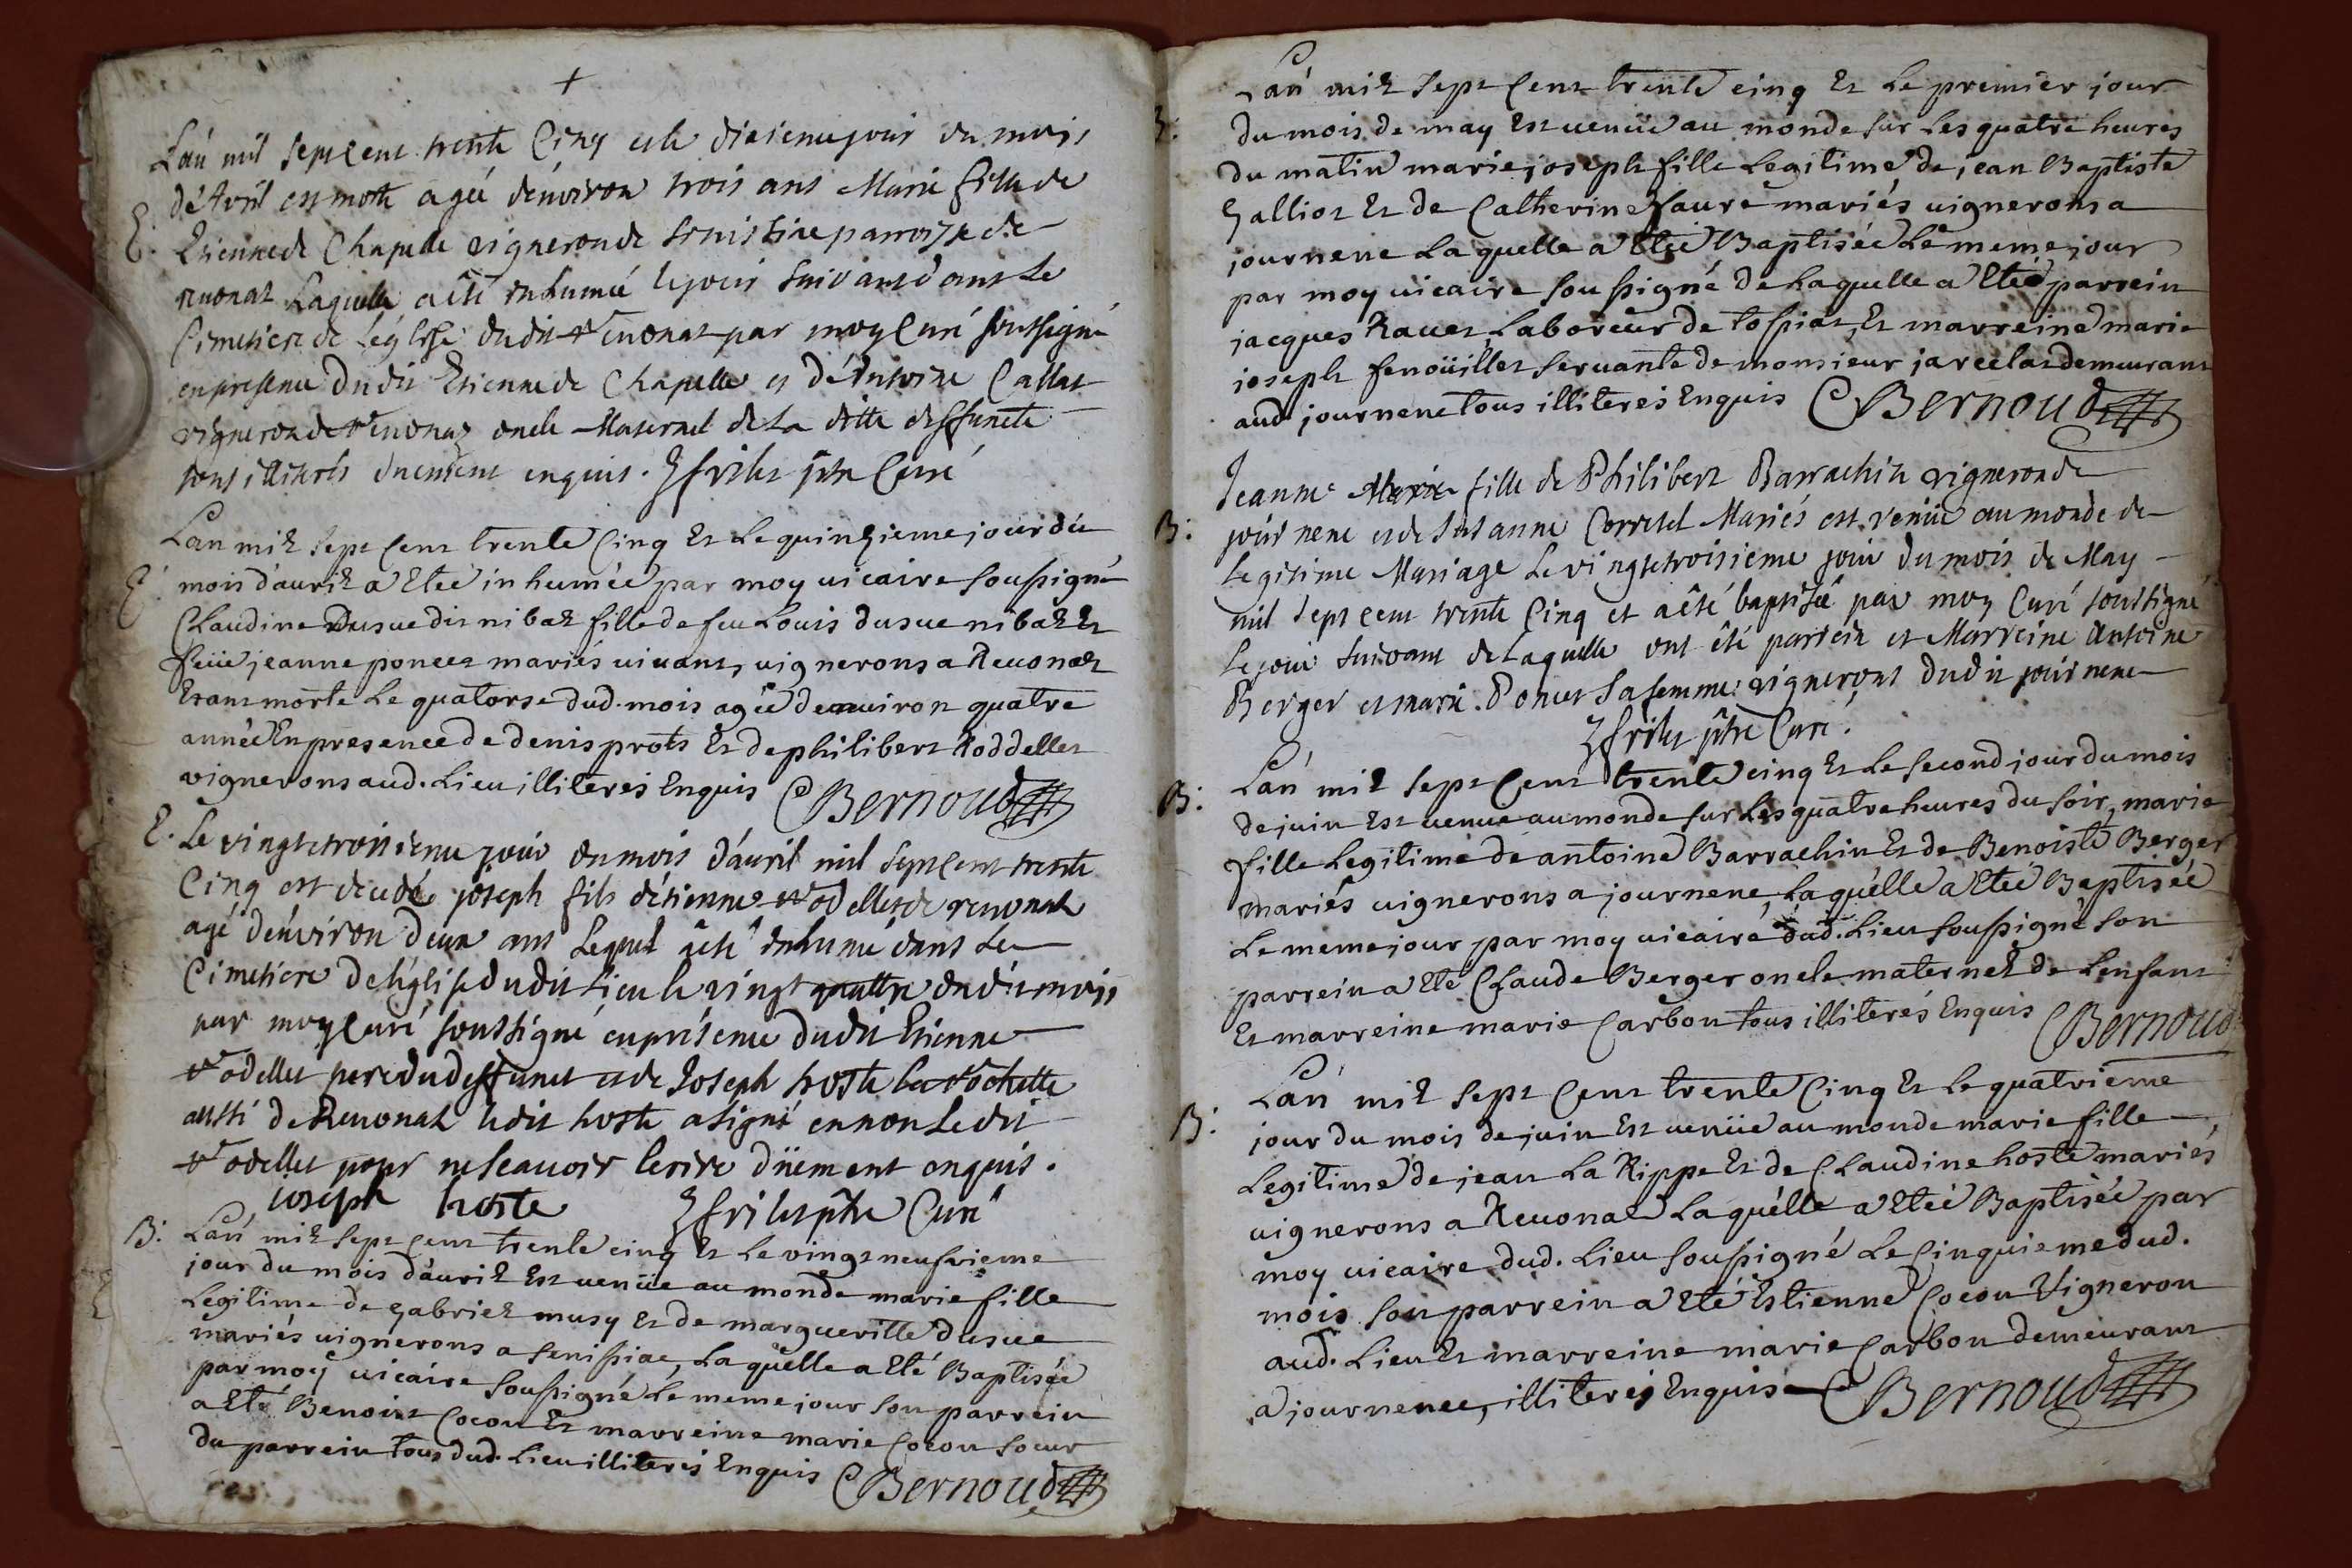 +
L'an mil sept cent trente Cinq et le dixieme jour du mois
d'Avril est morte agée d'environ trois ans Marie fille de
E. Etienne de Chapelle vigneron de parroisse de
Revonat Laquelle a êté inhumée le jour suivant dans Le
Cimetiere de l'église dudit Revonat par moy Curé soussigné
en presence dudit Etienne de Chapelle et d'Antoine Callat
vigneron de Revonaz oncle Maternel de La ditte deffuncte
tous illiterés enquis. frilet ptre Curé
Lan mil sept Cent trente Cinq Et Le quinzieme jour du
E. mois d'auril a Eteé inhumée par moy uicaire soussigné
Claudine Dusue dit nibat fille de feu Louis dusue nibat Et
feüe jeanne poncet mariés uiuant, uignerons a Reuonat
Etant morte Le quatorse dud. mois agée denuiron quatre
année En presence de denis prots Et de philibert Roddellet
vignerons aud. Lieu illiterés Enquis Bernoud
E. Le vingt troisieme jour du mois d'auril mil sept cent trente
Cinq est decedé joseph fils d'etienne Rodellet de revonat
agé d'environ deux ans Lequel a êté inhumé dans Le
Cimetiere de l'église dudit Lieu le vingt quattre dudit mois
par moy Curé soussigné en présence dudit Etienne
Rodellet pere du deffunct et de Joseph hoste La Rochette
aussi de Reuonat ledit hoste a signé et non Le dit
Rodellet pour ne scauoir lecrire düement enquis.
ioseph hoste frilet ptre Curé
B: L'an mil sept cent trente cinq Et Le vingt neufvieme
jour du mois d'auril Est uenüe au monde marie fille
Legitime de gabriel musy Et de margueritte dusue
mariés uignerons a senissiac, La quelle a Eté Baptisée
par moy uicaire soussigné Le meme jour son parrein
a Eté Benoist Cocon Et marreine marie Cocon soeur
du parrein tous dud. Lieu illiterés Enquis Bernoud
L'an mil sept Cent trente cinq Et Le premier jour
B: du mois de may Est uenüe au monde sur Les quatre heures
du matin marie joseph fille Legitime de jean Baptiste
Galliot Et de Catherine faure mariés uignerons a
journene La quelle a Eteé Baptisée Le meme jour
par moy uicaire soussigné de Laquelle a Eteé parrein
jacques Rauet Laboreur de tossiat, Et marreine marie
joseph fenoüillet seruante de monsieur jarcelat demeurant
aud. journene tous illiterés Enquis Bernoud
Jeanne Marie fille de Philibert Barrachin vigneron de
B: journene et de Susanne Corretel Mariés est venüe au monde de
Legitime Mariage Le vingt troisieme jour du mois de May
mil sept cent trente Cinq et a êté baptisée par moy Curé soussigné
Le jour suivant de Laquelle ont êté parrein et Marreine Antoine
Berger et marie Poncet sa femme vignerons dudit journene
frilet ptre Curé.
L'an mil sept Cent trente cinq Et Le second jour du mois
B: de juin Est uenue au monde sur Les quatre heures du soir, marie
fille Legitime de antoine Barrachin Et de Benoiste Berger
mariés uignerons a journene, La quelle a Eteé Baptisée
Le meme jour par moy uicaire dud. Lieu soussigné son
parrein a Eté Claude Berger oncle maternel de L'enfant
Et marreine marie Carbon tous illiterés Enquis Bernoud
L'an mil sept Cent trente Cinq Et Le quatrieme
B: jour du mois de juin Est uenüe au monde marie fille
Legitime de jean La Rippe Et de Claudine hoste mariés
uignerons a Reuonat Laquelle a Eteé Baptisée par
moy uicaire dud. Lieu soussigné Le Cinquieme dud.
mois son parrein a Eté Estienne Cocon Vigneron
aud. Lieu Et marreine marie Carbon demeurant
a journenee, illiterés Enquis Bernoud